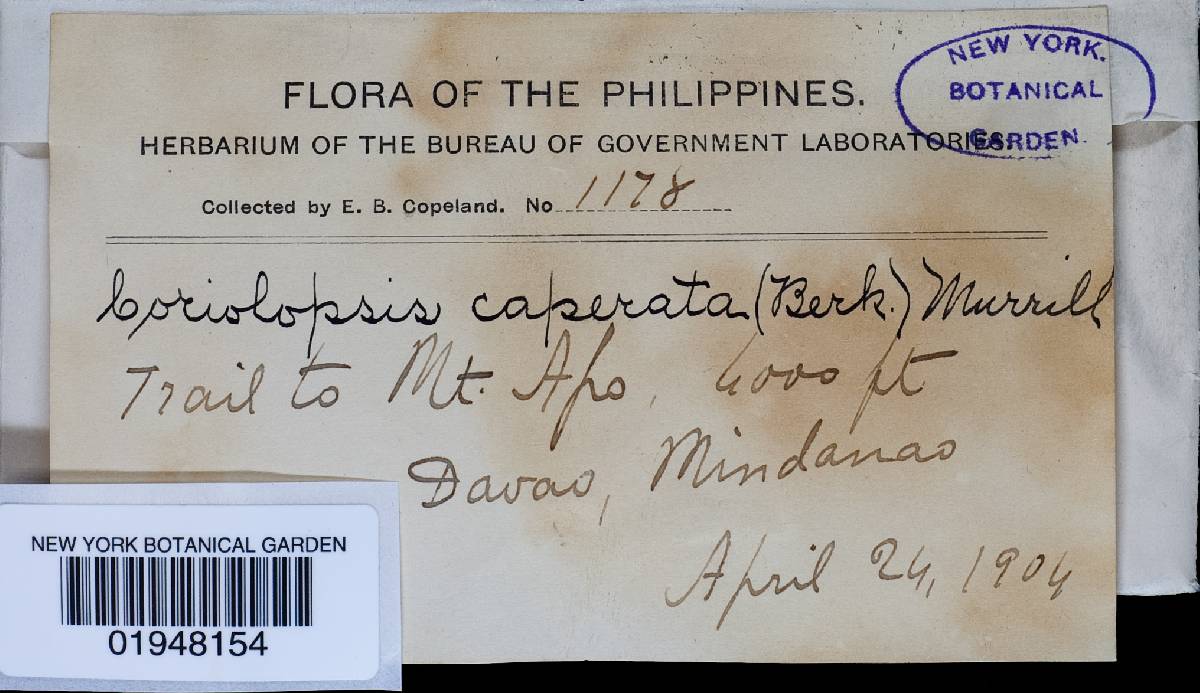 NEW YORK.
BOTANICAL
GARDEN.
FLORA OF THE PHILIPPINES.
HERBARIUM OF THE BUREAU OF GOVERNMENT LABORATORIES.
Collected by E. B. Copeland. No 1178
Coriolopsis caperata (Berk.) Murrill
Trail to Mt. Apo, 4000 ft
Davao, Mindanao
April 24, 1904
NEW YORK BOTANICAL GARDEN
01948154